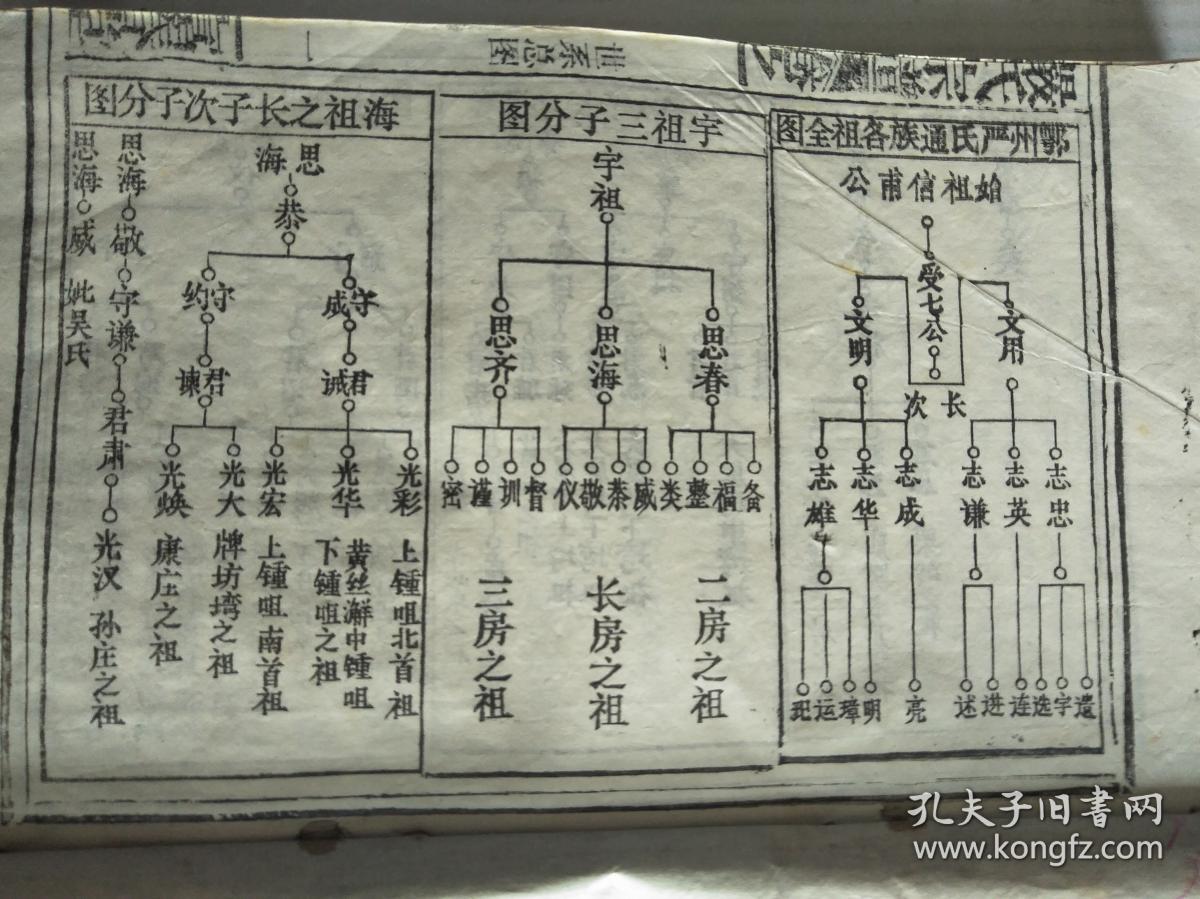 世系总图
一
鄂州严氏通族各祖全图
始祖信甫公
受七公
长 次
文用
文明
志忠
志英
志谦
志成
志华
志雄
遗
宇
选
连
进
述
亮
明
璋
运
玘
宇祖三子分图
宇祖
思春
思海
思齐
备
福
整
类
威
恭
敬
仪
督
训
谨
密
二房之祖
长房之祖
三房之祖
海祖之长子次子分图
思海
恭
守威
守约
君诚
君谏
光彩
光华
光宏
光大
光焕
上锺咀北首祖
黄丝澥中锺咀
下锺咀之祖
上锺咀南首祖
牌坊塆之祖
康庄之祖
思海 敬 守谦 君肃 光汉 孙庄之祖
思海 威 妣吴氏
孔夫子旧书网
www.kongfz.com